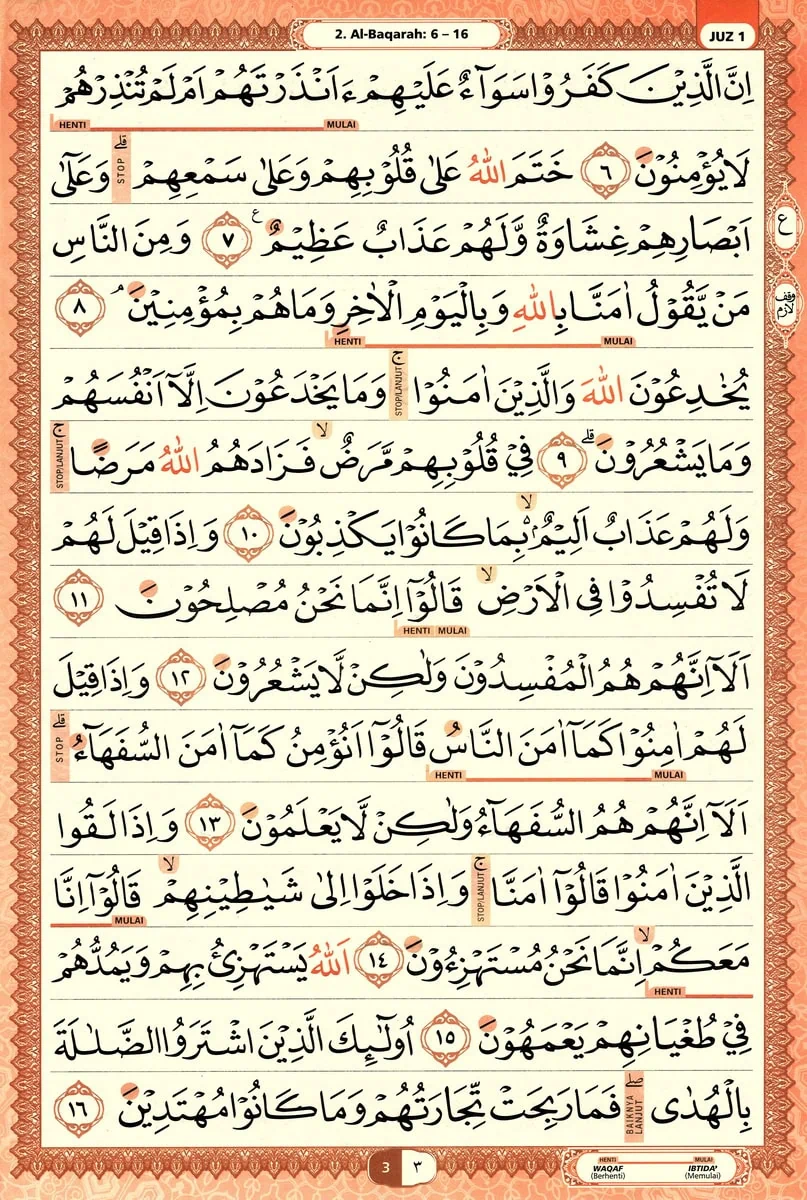 2. Al-Baqarah: 6 – 16
JUZ 1
اِنَّ الَّذِيْنَ كَفَرُوْا سَوَاۤءٌ عَلَيْهِمْ ءَاَنْذَرْتَهُمْ اَمْ لَمْ تُنْذِرْهُمْ
HENTI MULAI
لَا يُؤْمِنُوْنَ ٦ خَتَمَ اللّٰهُ عَلٰى قُلُوْبِهِمْ وَعَلٰى سَمْعِهِمْ ۗ STOP وَعَلٰٓى
اَبْصَارِهِمْ غِشَاوَةٌ وَّلَهُمْ عَذَابٌ عَظِيْمٌ ࣖ ٧ وَمِنَ النَّاسِ
ع
مَنْ يَّقُوْلُ اٰمَنَّا بِاللّٰهِ وَبِالْيَوْمِ الْاٰخِرِ وَمَا هُمْ بِمُؤْمِنِيْنَ ۘ ٨
وقف لازم
HENTI MULAI
يُخٰدِعُوْنَ اللّٰهَ وَالَّذِيْنَ اٰمَنُوْا ۚ STOP/LANJUT وَمَا يَخْدَعُوْنَ اِلَّآ اَنْفُسَهُمْ
وَمَا يَشْعُرُوْنَ ۗ ٩ فِيْ قُلُوْبِهِمْ مَّرَضٌ ۙ فَزَادَهُمُ اللّٰهُ مَرَضًا ۚ STOP/LANJUT
وَلَهُمْ عَذَابٌ اَلِيْمٌ ۢ ۙ بِمَا كَانُوْا يَكْذِبُوْنَ ١٠ وَاِذَا قِيْلَ لَهُمْ
لَا تُفْسِدُوْا فِى الْاَرْضِ ۙ قَالُوْٓا اِنَّمَا نَحْنُ مُصْلِحُوْنَ ١١
HENTI MULAI
اَلَآ اِنَّهُمْ هُمُ الْمُفْسِدُوْنَ وَلٰكِنْ لَّا يَشْعُرُوْنَ ١٢ وَاِذَا قِيْلَ
لَهُمْ اٰمِنُوْا كَمَآ اٰمَنَ النَّاسُ قَالُوْٓا اَنُؤْمِنُ كَمَآ اٰمَنَ السُّفَهَاۤءُ ۗ STOP
HENTI MULAI
اَلَآ اِنَّهُمْ هُمُ السُّفَهَاۤءُ وَلٰكِنْ لَّا يَعْلَمُوْنَ ١٣ وَاِذَا لَقُوا
الَّذِيْنَ اٰمَنُوْا قَالُوْٓا اٰمَنَّا ۚ STOP/LANJUT وَاِذَا خَلَوْا اِلٰى شَيٰطِيْنِهِمْ ۙ قَالُوْٓا اِنَّا
MULAI
مَعَكُمْ ۙ اِنَّمَا نَحْنُ مُسْتَهْزِءُوْنَ ١٤ اَللّٰهُ يَسْتَهْزِئُ بِهِمْ وَيَمُدُّهُمْ
HENTI
فِيْ طُغْيَانِهِمْ يَعْمَهُوْنَ ١٥ اُولٰۤىِٕكَ الَّذِيْنَ اشْتَرَوُا الضَّلٰلَةَ
بِالْهُدٰى ۖ BAIKNYA LANJUT فَمَا رَبِحَتْ تِّجَارَتُهُمْ وَمَا كَانُوْا مُهْتَدِيْنَ ١٦
3 ٣
HENTI MULAI
WAQAF IBTIDA'
(Berhenti) (Memulai)